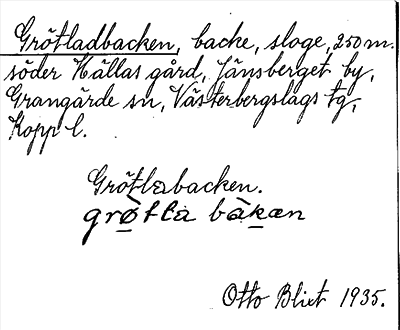 Grötladbacken, backe, sloge, 250 m.
söder Källas gård, Jänsberget by,
Grangärde sn, Västerbergslags tg,
Kopp l.
Grötlabacken.
grøtla bàkæn
Otto Blixt 1935.